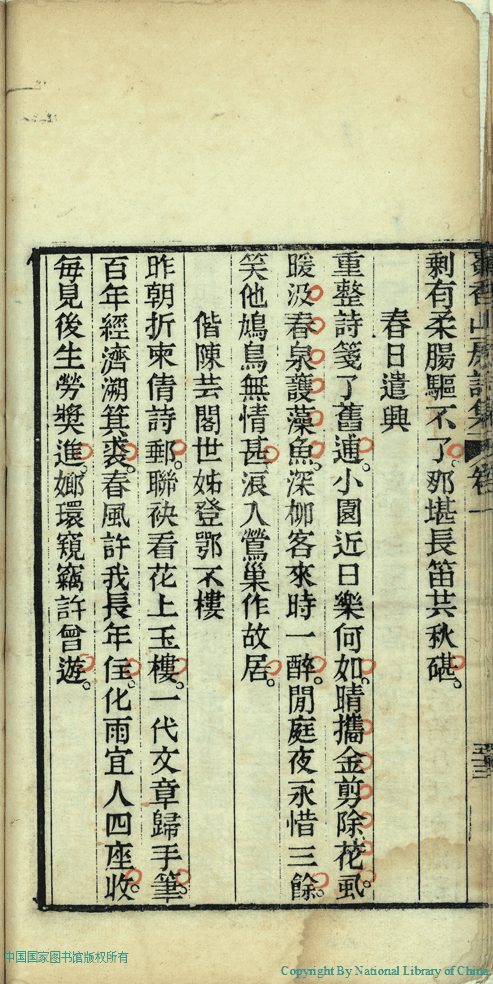 剩有柔腸驅不了。那堪長笛共秋碪。
春日遣興
重整詩箋了舊逋。小園近日樂何如。晴攜金剪除花虱。
暖汲春泉護藻魚。深柳客來時一醉。閒庭夜永惜三餘。
笑他鳩鳥無情甚。滾入鶯巢作故居。
偕陳芸閣世姊登鄂不樓
昨朝折柬倩詩郵。聯袂看花上玉樓。一代文章歸手筆。
百年經濟溯箕裘。春風許我長年住。化雨宜人四座收。
每見後生勞奬進。嫏環窺竊許曾遊。
中国国家图书馆版权所有
Copyright By National Library of China